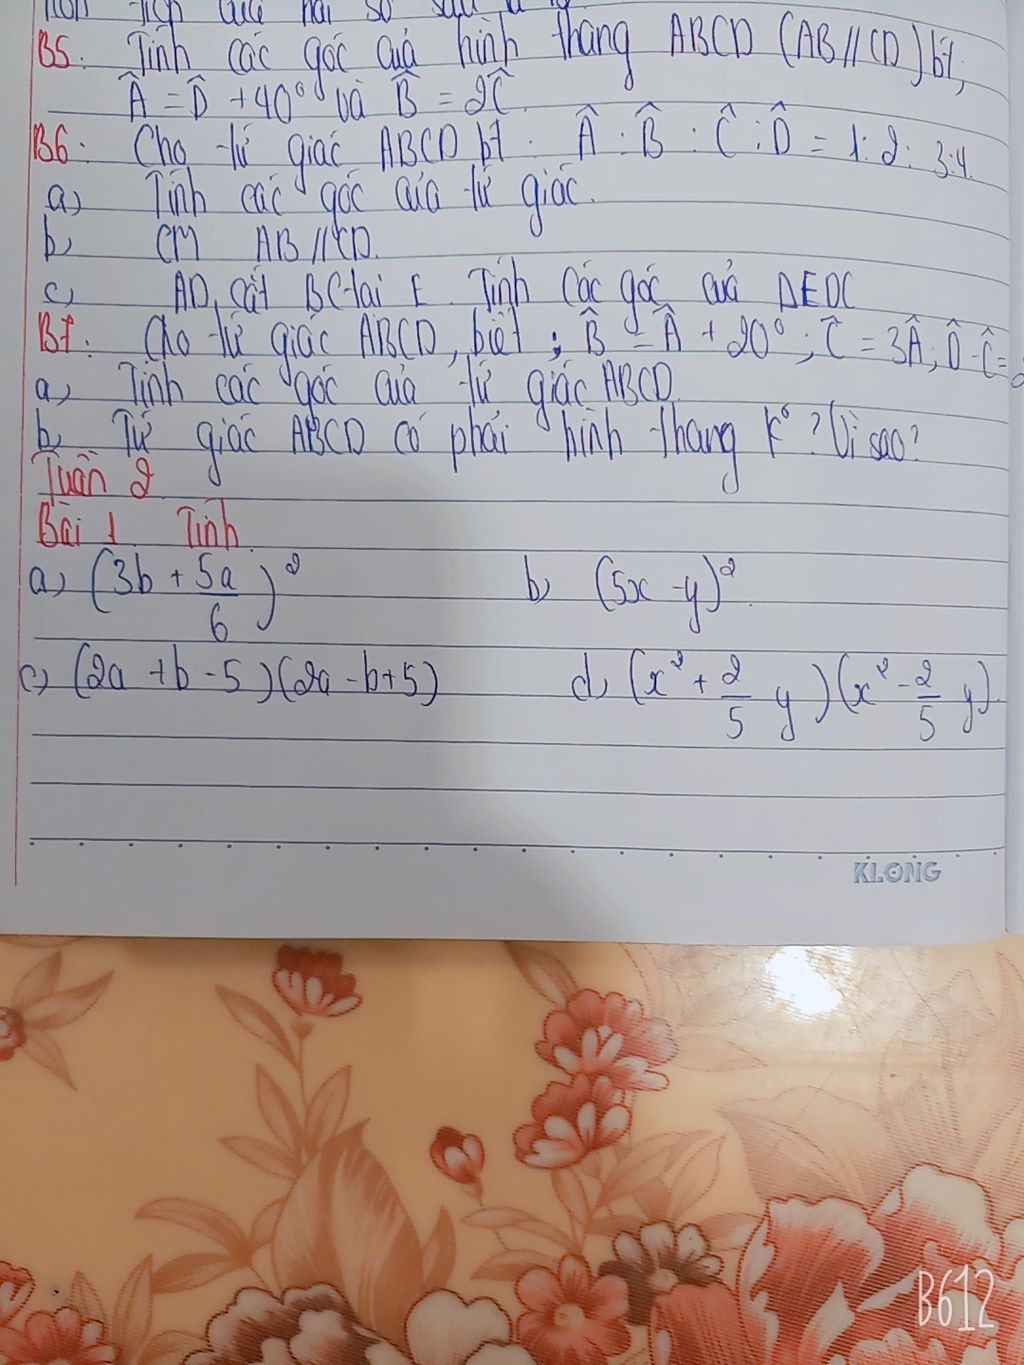 B5. Tính các góc của hình thang ABCD (AB//CD) bt,
Â = D̂ + 40° và B̂ = 2Ĉ.
B6. Cho tứ giác ABCD bt. Â : B̂ : Ĉ : D̂ = 1:2:3:4.
a) Tính các góc của tứ giác.
b) CM AB//CD.
c) AD, cắt BC tại E. Tính các góc của ΔEDC
B7. Cho tứ giác ABCD, biết ; B̂ = Â + 20° ; Ĉ = 3Â ; D̂ - Ĉ =
a) Tính các góc của tứ giác ABCD.
b) Tứ giác ABCD có phải hình thang k° ? Vì sao?
Tuần 2
Bài 1 Tính.
a) (3b + 5a/6)² b) (5x - y)².
c) (2a + b - 5)(2a - b + 5) d) (x² + 2/5 y)(x² - 2/5 y).
KLONG
B612